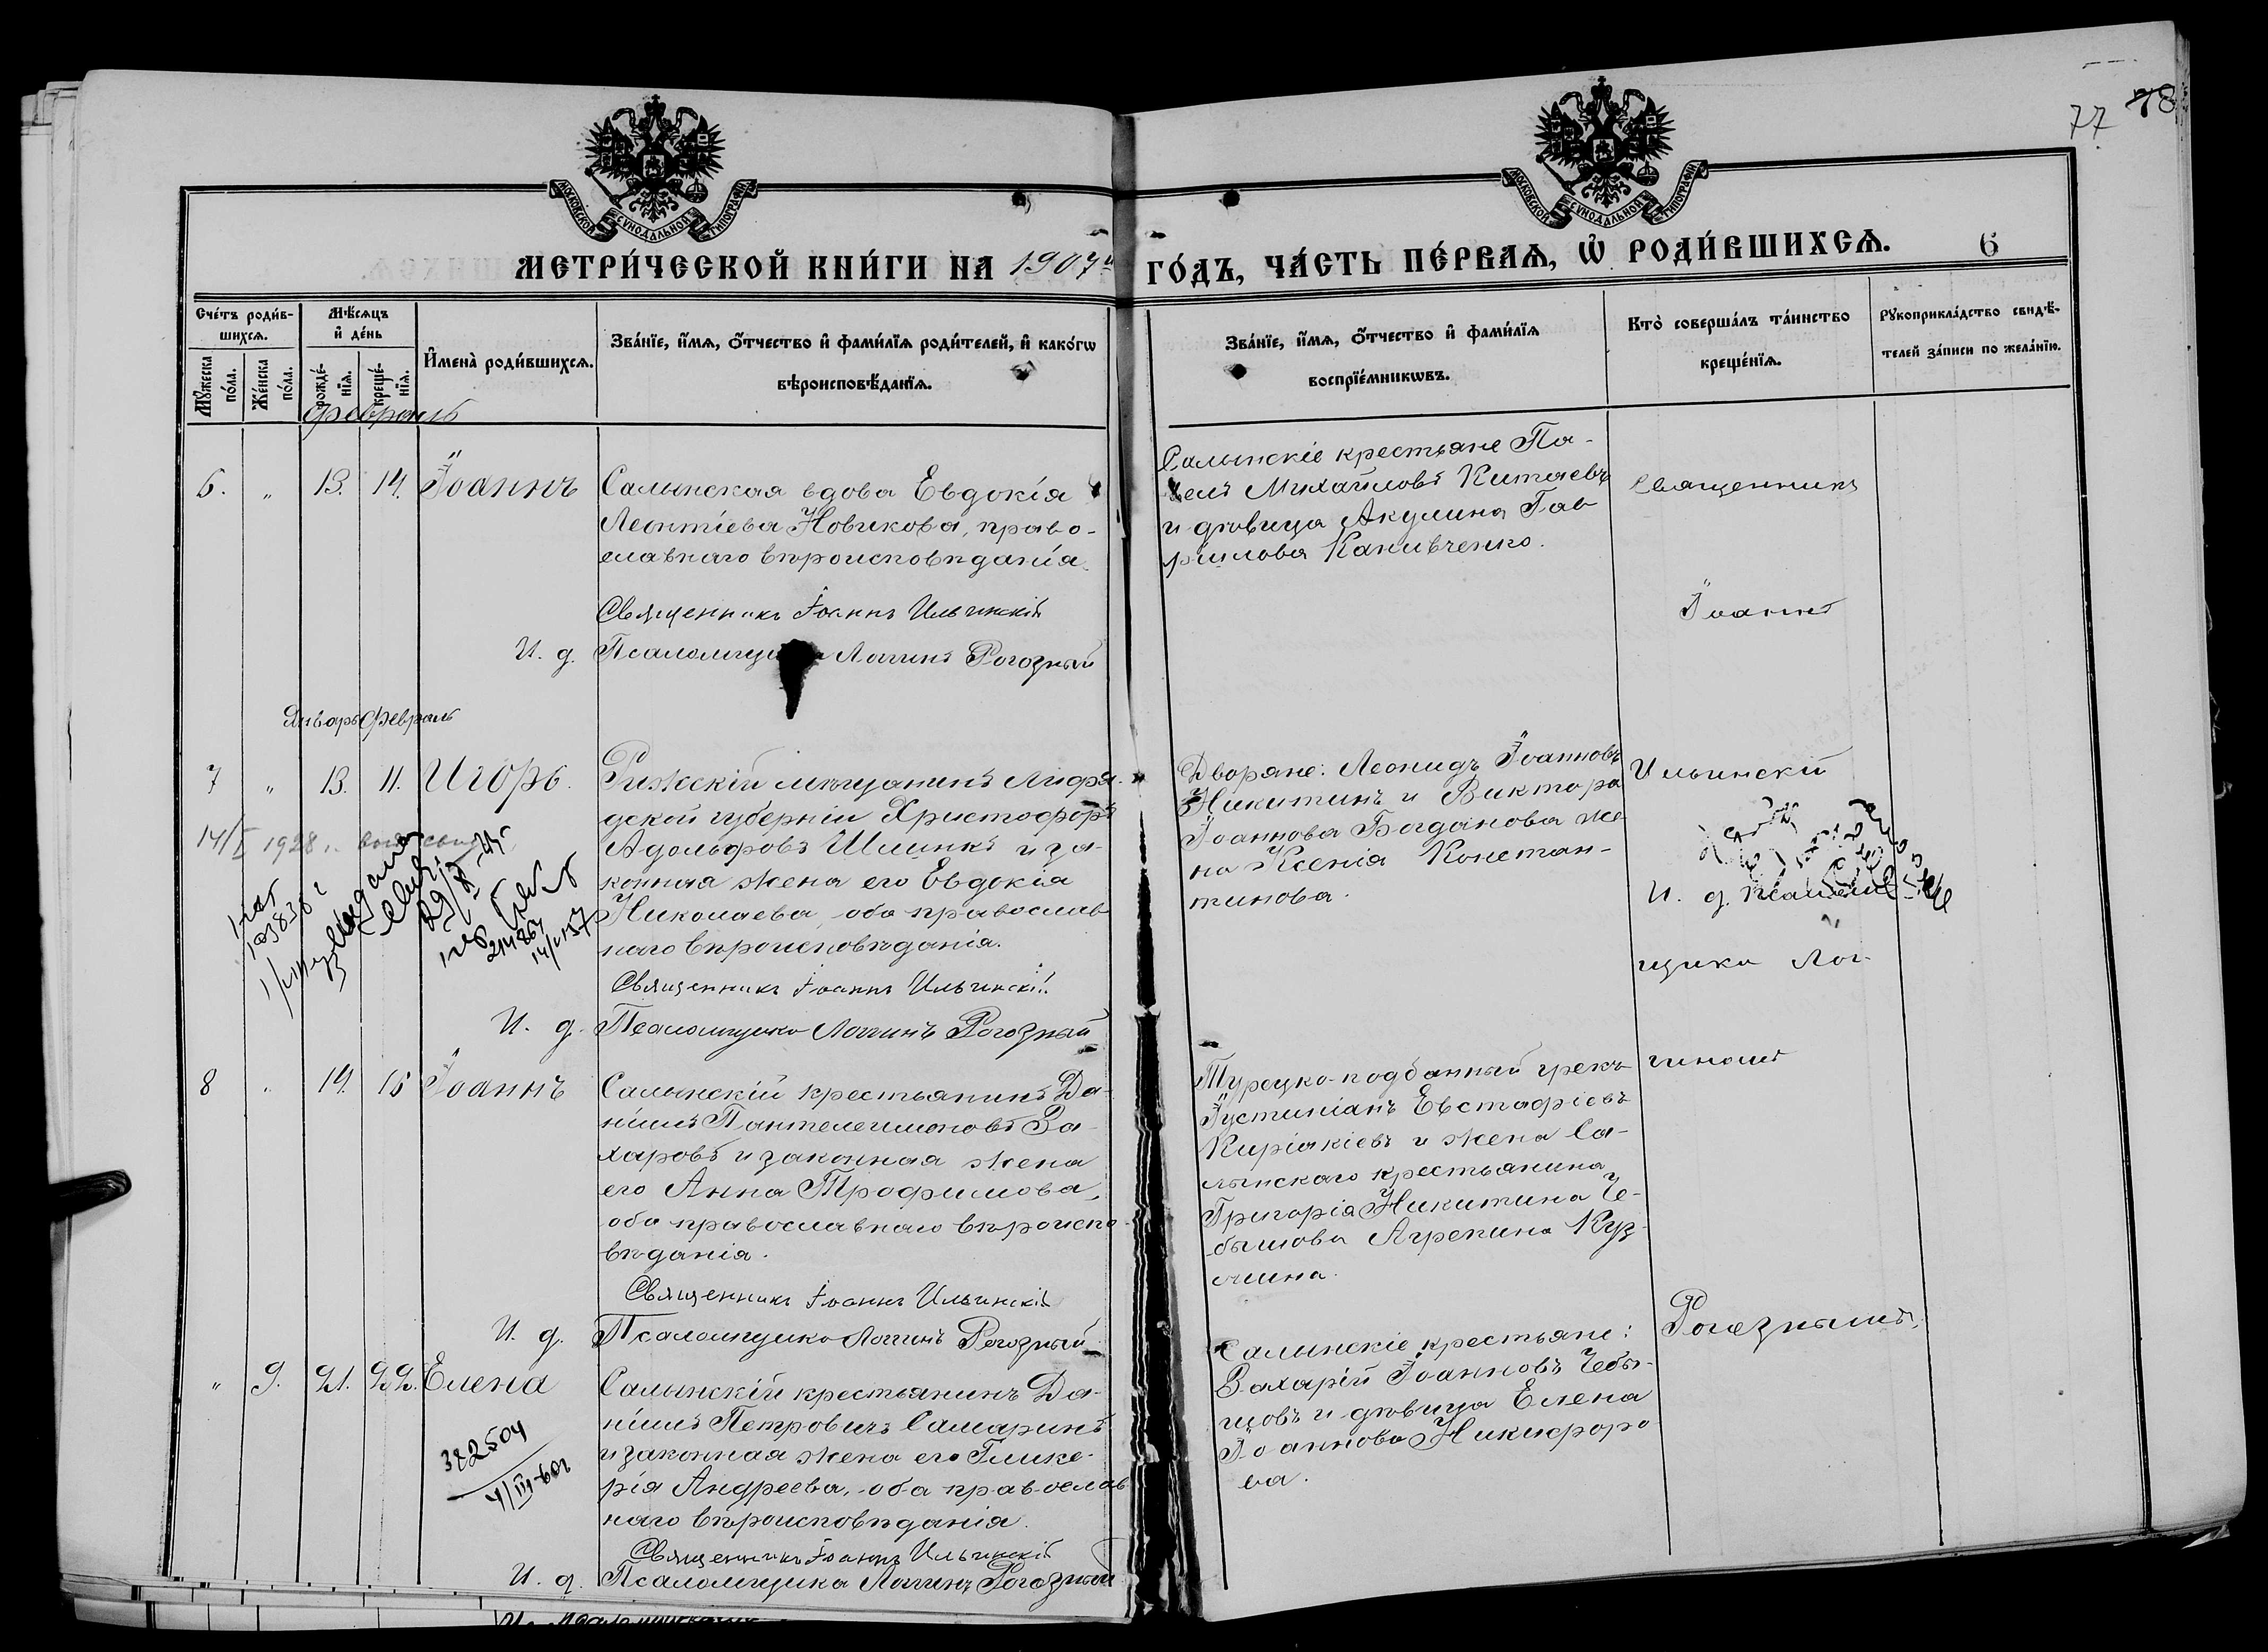 77 78
МОСКОВСКОЙ СУНОДАЛЬНОЙ ТИПОГРАФІИ
МОСКОВСКОЙ СУНОДАЛЬНОЙ ТИПОГРАФІИ
МЕТРИ́ЧЕСКОЙ КНИ́ГИ НА 1907й ГО́ДЪ, ЧА́СТЬ ПЕ́РВАѦ, Ѡ҆ РОДИ́ВШИХСѦ. 6
Сче́тъ роди́в-
шихсѧ.
Мꙋ́жеска по́ла.
Же́нска по́ла.
Мѣ́сѧцъ
и҆ де́нь
рожде́-
нїѧ.
креще́-
нїѧ.
И҆мена̀ роди́вшихсѧ.
Зва́нїе, и҆́мѧ, о҆́тчество и҆ фами́лїѧ роди́телей, и҆ како́гѡ
вѣроисповѣ́данїѧ.
Зва́нїе, и҆́мѧ, о҆́тчество и҆ фами́лїѧ
воспрїе́мникѡвъ.
Кто̀ соверша́лъ та́инство
креще́нїѧ.
Рꙋкоприкла́дство свидѣ́-
телей за́писи по жела́нїю.
февраль
6. " 13. 14. Іоаннъ
Салынская вдова Евдокія
Леонтіева Новикова, право-
славнаго вѣроисповѣданія.
Священникъ Іоаннъ Ильинскій
И. д. Псаломщика Логинъ Рогозный
Салынскіе крестьяне Па-
велъ Михайловъ Китаевъ
и дѣвица Акулина Гав
рилова Канивченко.
Священникъ
Іоаннъ
Январь февраль
7 " 13. 11. Игорь.
14/I 1928
Рижскій мѣщанинъ Лифля-
дской губерніи Христофоръ
Адольфовъ Шминкъ и за-
конная жена его Евдокія
Николаева, оба православ
наго вѣроисповѣданія.
Священникъ Іоаннъ Ильинскій
И. д. Псаломщика Логинъ Рогозный
Дворяне: Леонидъ Іоанновъ
Никитинъ и Виктора
Іоаннова Богданова же-
на Ксенія Констан-
тинова.
Ильинскій
И. д. псалом-
щика Лог-
8 " 14. 15 Іоаннъ
Салынскій крестьянинъ Да-
ніилъ Пантелеимоновъ За-
харовъ и законная жена
его Анна Трофимова,
оба православнаго вѣроиспо-
вѣданія.
Священникъ Іоаннъ Ильинскій
И. д. Псаломщика Логинъ Рогозный
Турецко-подданный грекъ
Іустиніанъ Евстафіевъ
Киріакіевъ и жена Са-
лынскаго крестьянина
Григорія Никитина Че-
бышова Агрепина Куз-
мина.
гиномъ
" 9. 21. 22. Елена
382504
Салынскій крестьянинъ Да-
ніилъ Петровичъ Самаринъ
и законная жена его Глике-
рія Андреева, оба православ
наго вѣроисповѣданія.
Священникъ Іоаннъ Ильинскій
И. д. Псаломщика Логинъ Рогозный
Салынскіе крестьяне:
Захарій Іоанновъ Чебы-
шовъ и дѣвица Елена
Іоаннова Никифоро
ва.
Рогознымъ.